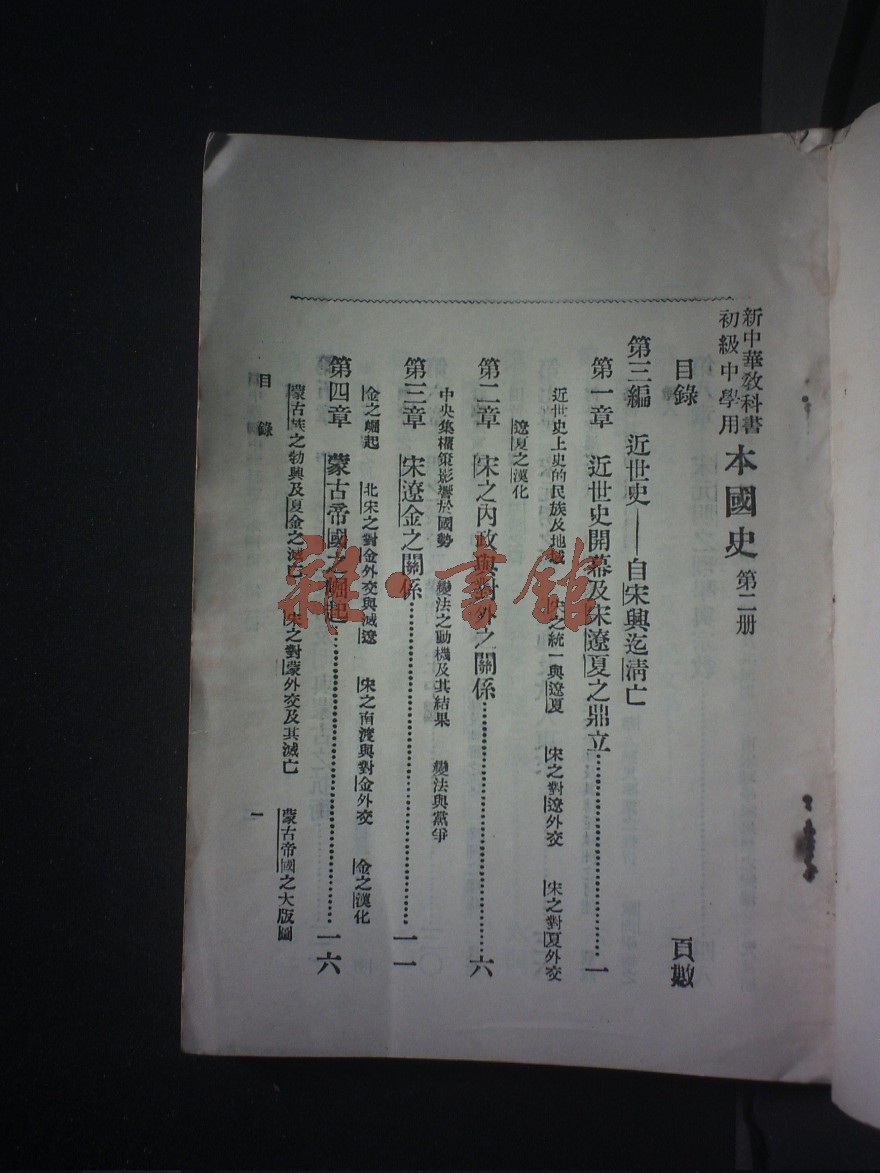 新中華教科書
初級中學用
本國史 第二册
目錄 頁數
第三編 近世史——自宋興迄淸亡
第一章 近世史開幕及宋遼夏之鼎立…………一
近世史上史的民族及地域 宋之統一與遼夏 宋之對遼外交 宋之對夏外交
遼夏之漢化
第二章 宋之內政與對外之關係…………六
中央集權策影響於國勢 變法之動機及其結果 變法與黨爭
第三章 宋遼金之關係…………一一
金之崛起 北宋之對金外交與滅遼 宋之南渡與對金外交 金之漢化
第四章 蒙古帝國之崛起…………一六
蒙古族之勃興及夏金之滅亡 宋之對蒙外交及其滅亡 蒙古帝國之大版圖
目錄 一
雜·書館